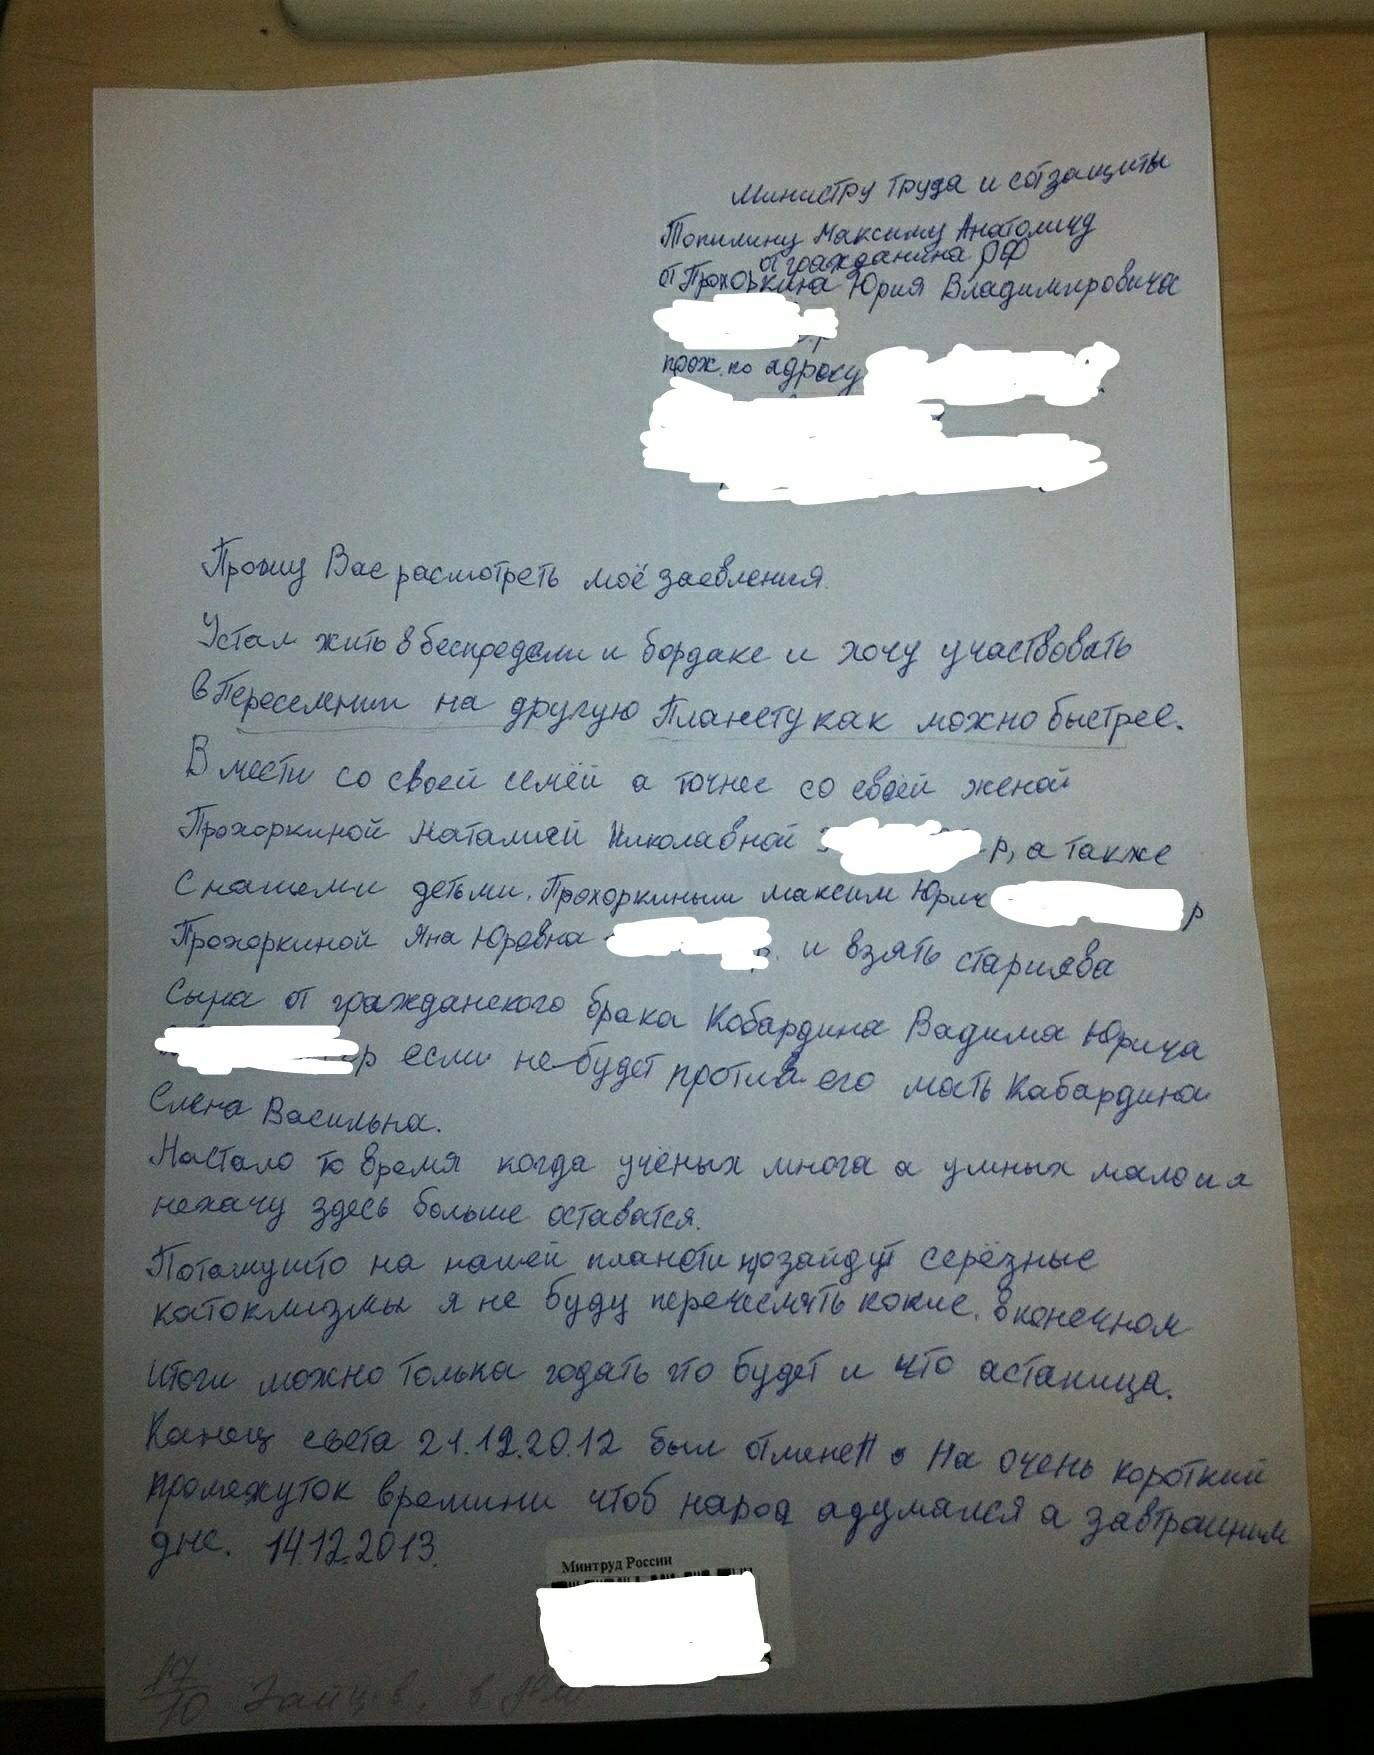 Министру труда и соцзащиты
Топилину Максиму Анатоличу
от гражданина РФ
от Прохоркина Юрия Владимировича
р
прож. по адресу
Прошу Вас расмотреть моё заевления.
Устал жить в беспредели и бордаке и хочу участвовать
в Переселении на другую Планету как можно быстрее.
В мести со своей семёй а точнее со своей женой
Прохоркиной Наталией Николавной р, а также
с нашеми детьми. Прохоркиным Максим Юрич р
Прохоркиной Яна Юревна р. и взять старшева
сына от гражданского брака Кобардина Вадима Юрича
р если не будет против его мать Кабардина
Елена Васильна.
Настало то время когда учёных многа а умных мало и я
нехачу здесь больше оставатся.
Потомушто на нашей планети прозайдут серёзные
катоклизмы я не буду перечеслять кокие. в конечном
итоги можно толька годать что будет и что астаница.
Канец света 21.12.2012 был отменен. На очень короткий
промежуток времини чтоб народ адумался а завтрашним
дне. 14.12.2013.
Минтруд России
17/10 Зайцев. в